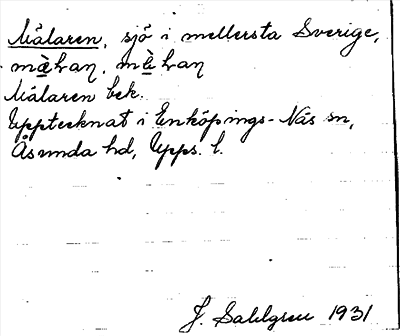 Mälaren, sjö i mellersta Sverige,
Mälaren bek.
Upptecknat i Enköpings-Näs sn,
Åsunda hd, Upps. l.
J. Sahlgren 1931